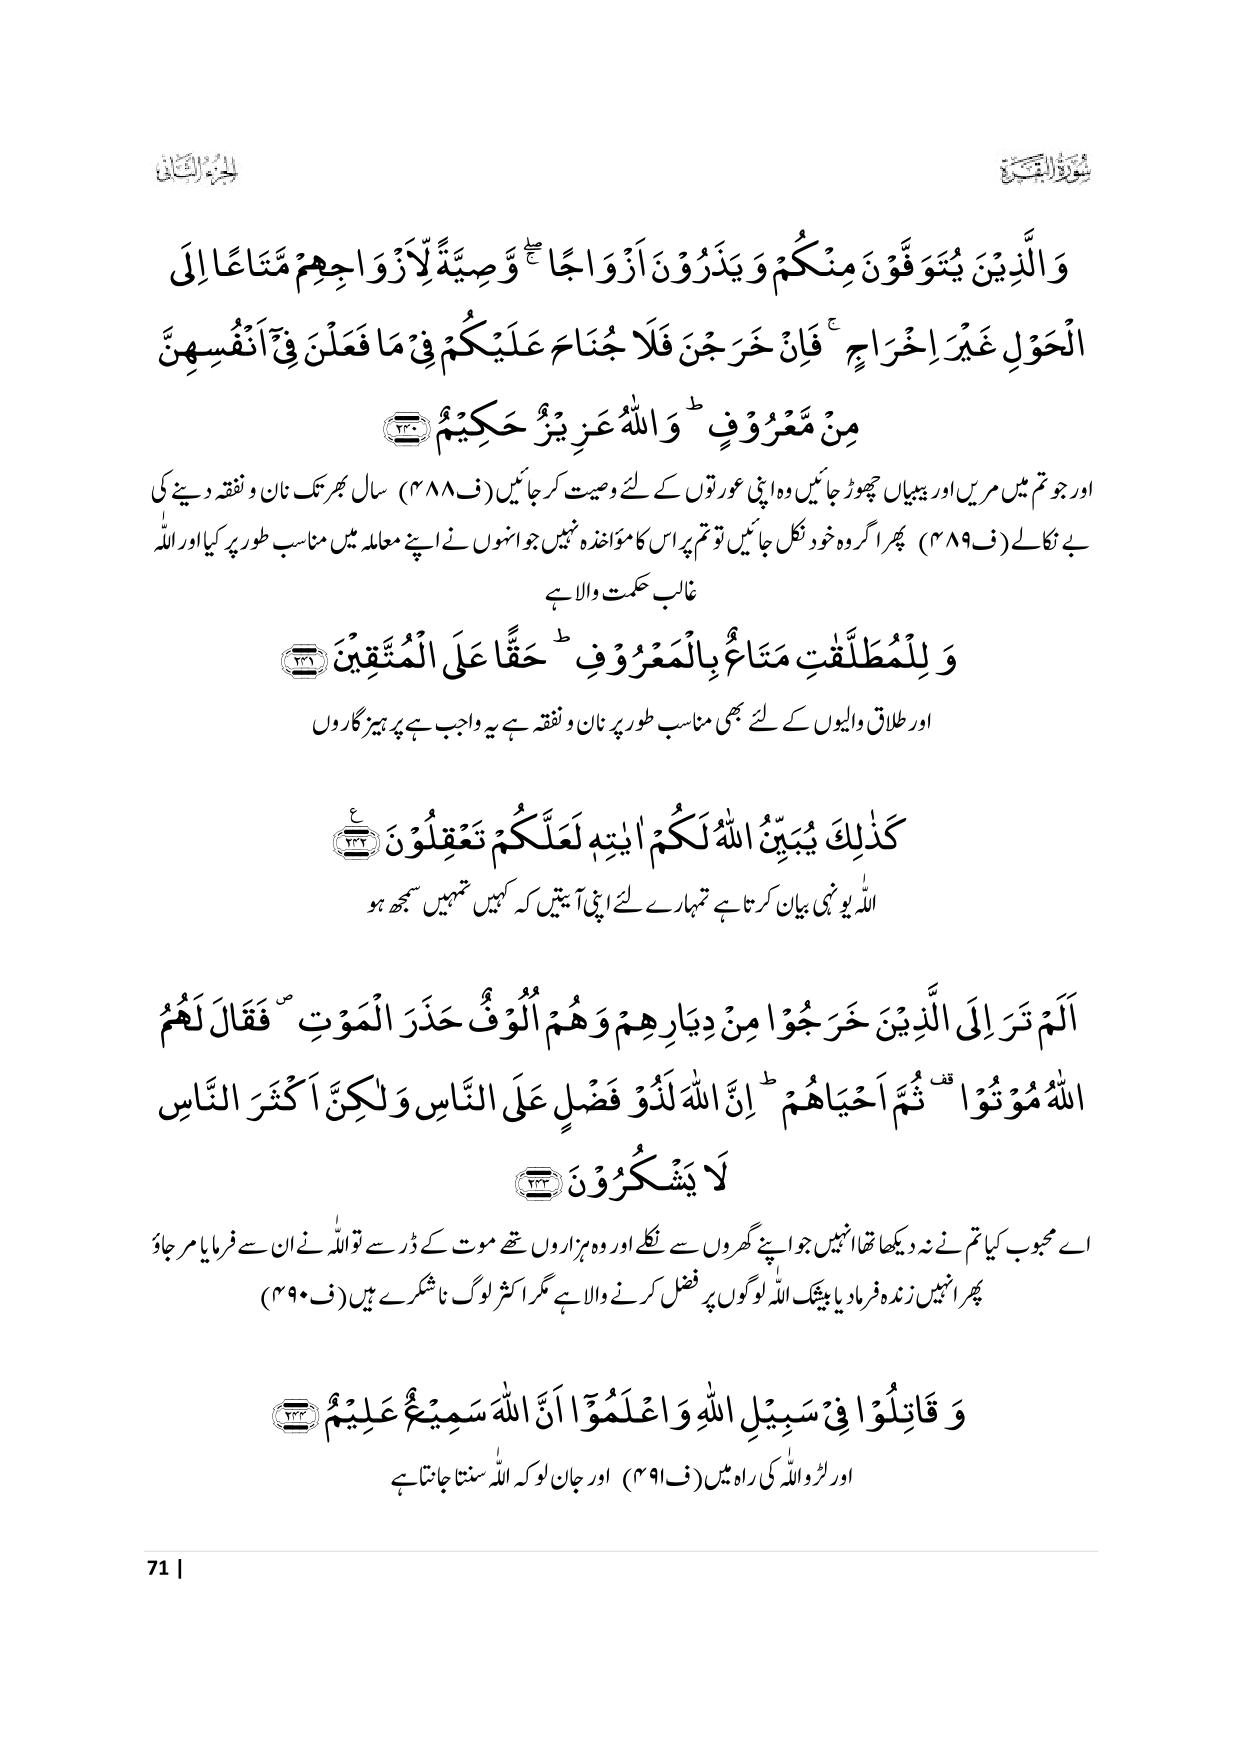 سُوْرَةُ الْبَقَرَةِ
الجزء الثانی
وَالَّذِیْنَ یُتَوَفَّوْنَ مِنْكُمْ وَیَذَرُوْنَ اَزْوَاجًا ۖۚ وَّصِیَّةً لِّاَزْوَاجِهِمْ مَّتَاعًا اِلَی
الْحَوْلِ غَیْرَ اِخْرَاجٍ ۚ فَاِنْ خَرَجْنَ فَلَا جُنَاحَ عَلَیْكُمْ فِیْ مَا فَعَلْنَ فِیْۤ اَنْفُسِهِنَّ
مِنْ مَّعْرُوْفٍ ؕ وَاللّٰهُ عَزِیْزٌ حَكِیْمٌ ﴿۲۴۰﴾
اور جو تم میں مریں اور بیبیاں چھوڑ جائیں وہ اپنی عورتوں کے لئے وصیت کر جائیں (ف۴۸۸) سال بھر تک نان و نفقہ دینے کی
بے نکالے (ف۴۸۹) پھر اگر وہ خود نکل جائیں تو تم پر اس کا مؤاخذہ نہیں جو انہوں نے اپنے معاملہ میں مناسب طور پر کیا اور اللّٰہ
غالب حکمت والا ہے
وَ لِلْمُطَلَّقٰتِ مَتَاعٌۢ بِالْمَعْرُوْفِ ؕ حَقًّا عَلَی الْمُتَّقِیْنَ ﴿۲۴۱﴾
اور طلاق والیوں کے لئے بھی مناسب طور پر نان و نفقہ ہے یہ واجب ہے پرہیزگاروں
كَذٰلِكَ یُبَیِّنُ اللّٰهُ لَكُمْ اٰیٰتِهٖ لَعَلَّكُمْ تَعْقِلُوْنَ ﴿۲۴۲﴾ ع
اللّٰہ یونہی بیان کرتا ہے تمہارے لئے اپنی آیتیں کہ کہیں تمہیں سمجھ ہو
اَلَمْ تَرَ اِلَی الَّذِیْنَ خَرَجُوْا مِنْ دِیَارِهِمْ وَهُمْ اُلُوْفٌ حَذَرَ الْمَوْتِ ۪ فَقَالَ لَهُمُ
اللّٰهُ مُوْتُوْا ۫ ثُمَّ اَحْیَاهُمْ ؕ اِنَّ اللّٰهَ لَذُوْ فَضْلٍ عَلَی النَّاسِ وَلٰكِنَّ اَكْثَرَ النَّاسِ
لَا یَشْكُرُوْنَ ﴿۲۴۳﴾
اے محبوب کیا تم نے نہ دیکھا تھا انہیں جو اپنے گھروں سے نکلے اور وہ ہزاروں تھے موت کے ڈر سے تو اللّٰہ نے ان سے فرمایا مر جاؤ
پھر انہیں زندہ فرما دیا بیشک اللّٰہ لوگوں پر فضل کرنے والا ہے مگر اکثر لوگ ناشکرے ہیں (ف۴۹۰)
وَ قَاتِلُوْا فِیْ سَبِیْلِ اللّٰهِ وَاعْلَمُوْۤا اَنَّ اللّٰهَ سَمِیْعٌ عَلِیْمٌ ﴿۲۴۴﴾
اور لڑو اللّٰہ کی راہ میں (ف۴۹۱) اور جان لو کہ اللّٰہ سنتا جانتا ہے
71 |